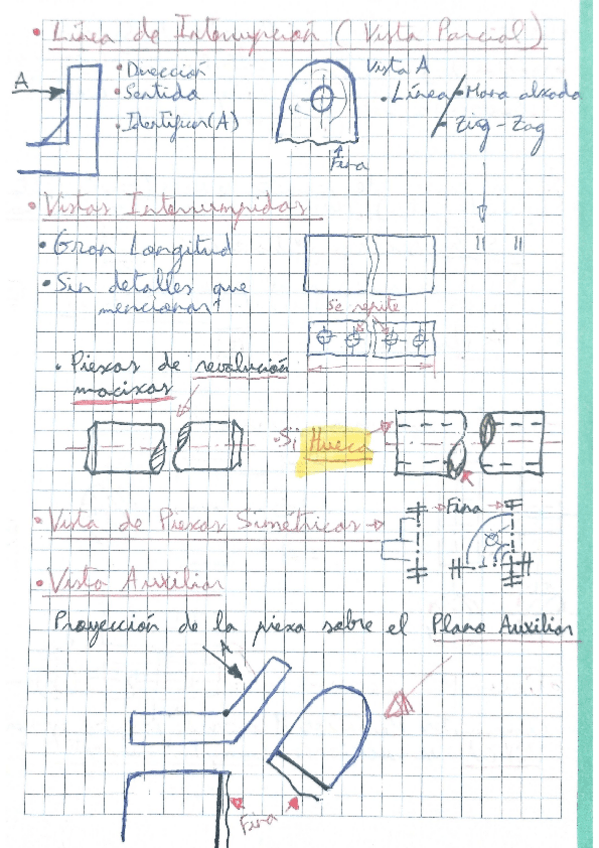 • Línea de Interrupción (Vista Parcial)
A
• Dirección
• Sentido
• Identificar (A)
Vista A
• Línea / • Mano alzada
• Zig-Zag
Fina
• Vistas Interrumpidas
• Gran Longitud
• Sin detalles que
mencionar
Se repite
• Piezas de revolución
macizas
• Si Hueca
• Vista de Piezas Simétricas →
→ Fina →
• Vista Auxiliar
Proyección de la pieza sobre el Plano Auxiliar
A
Fina